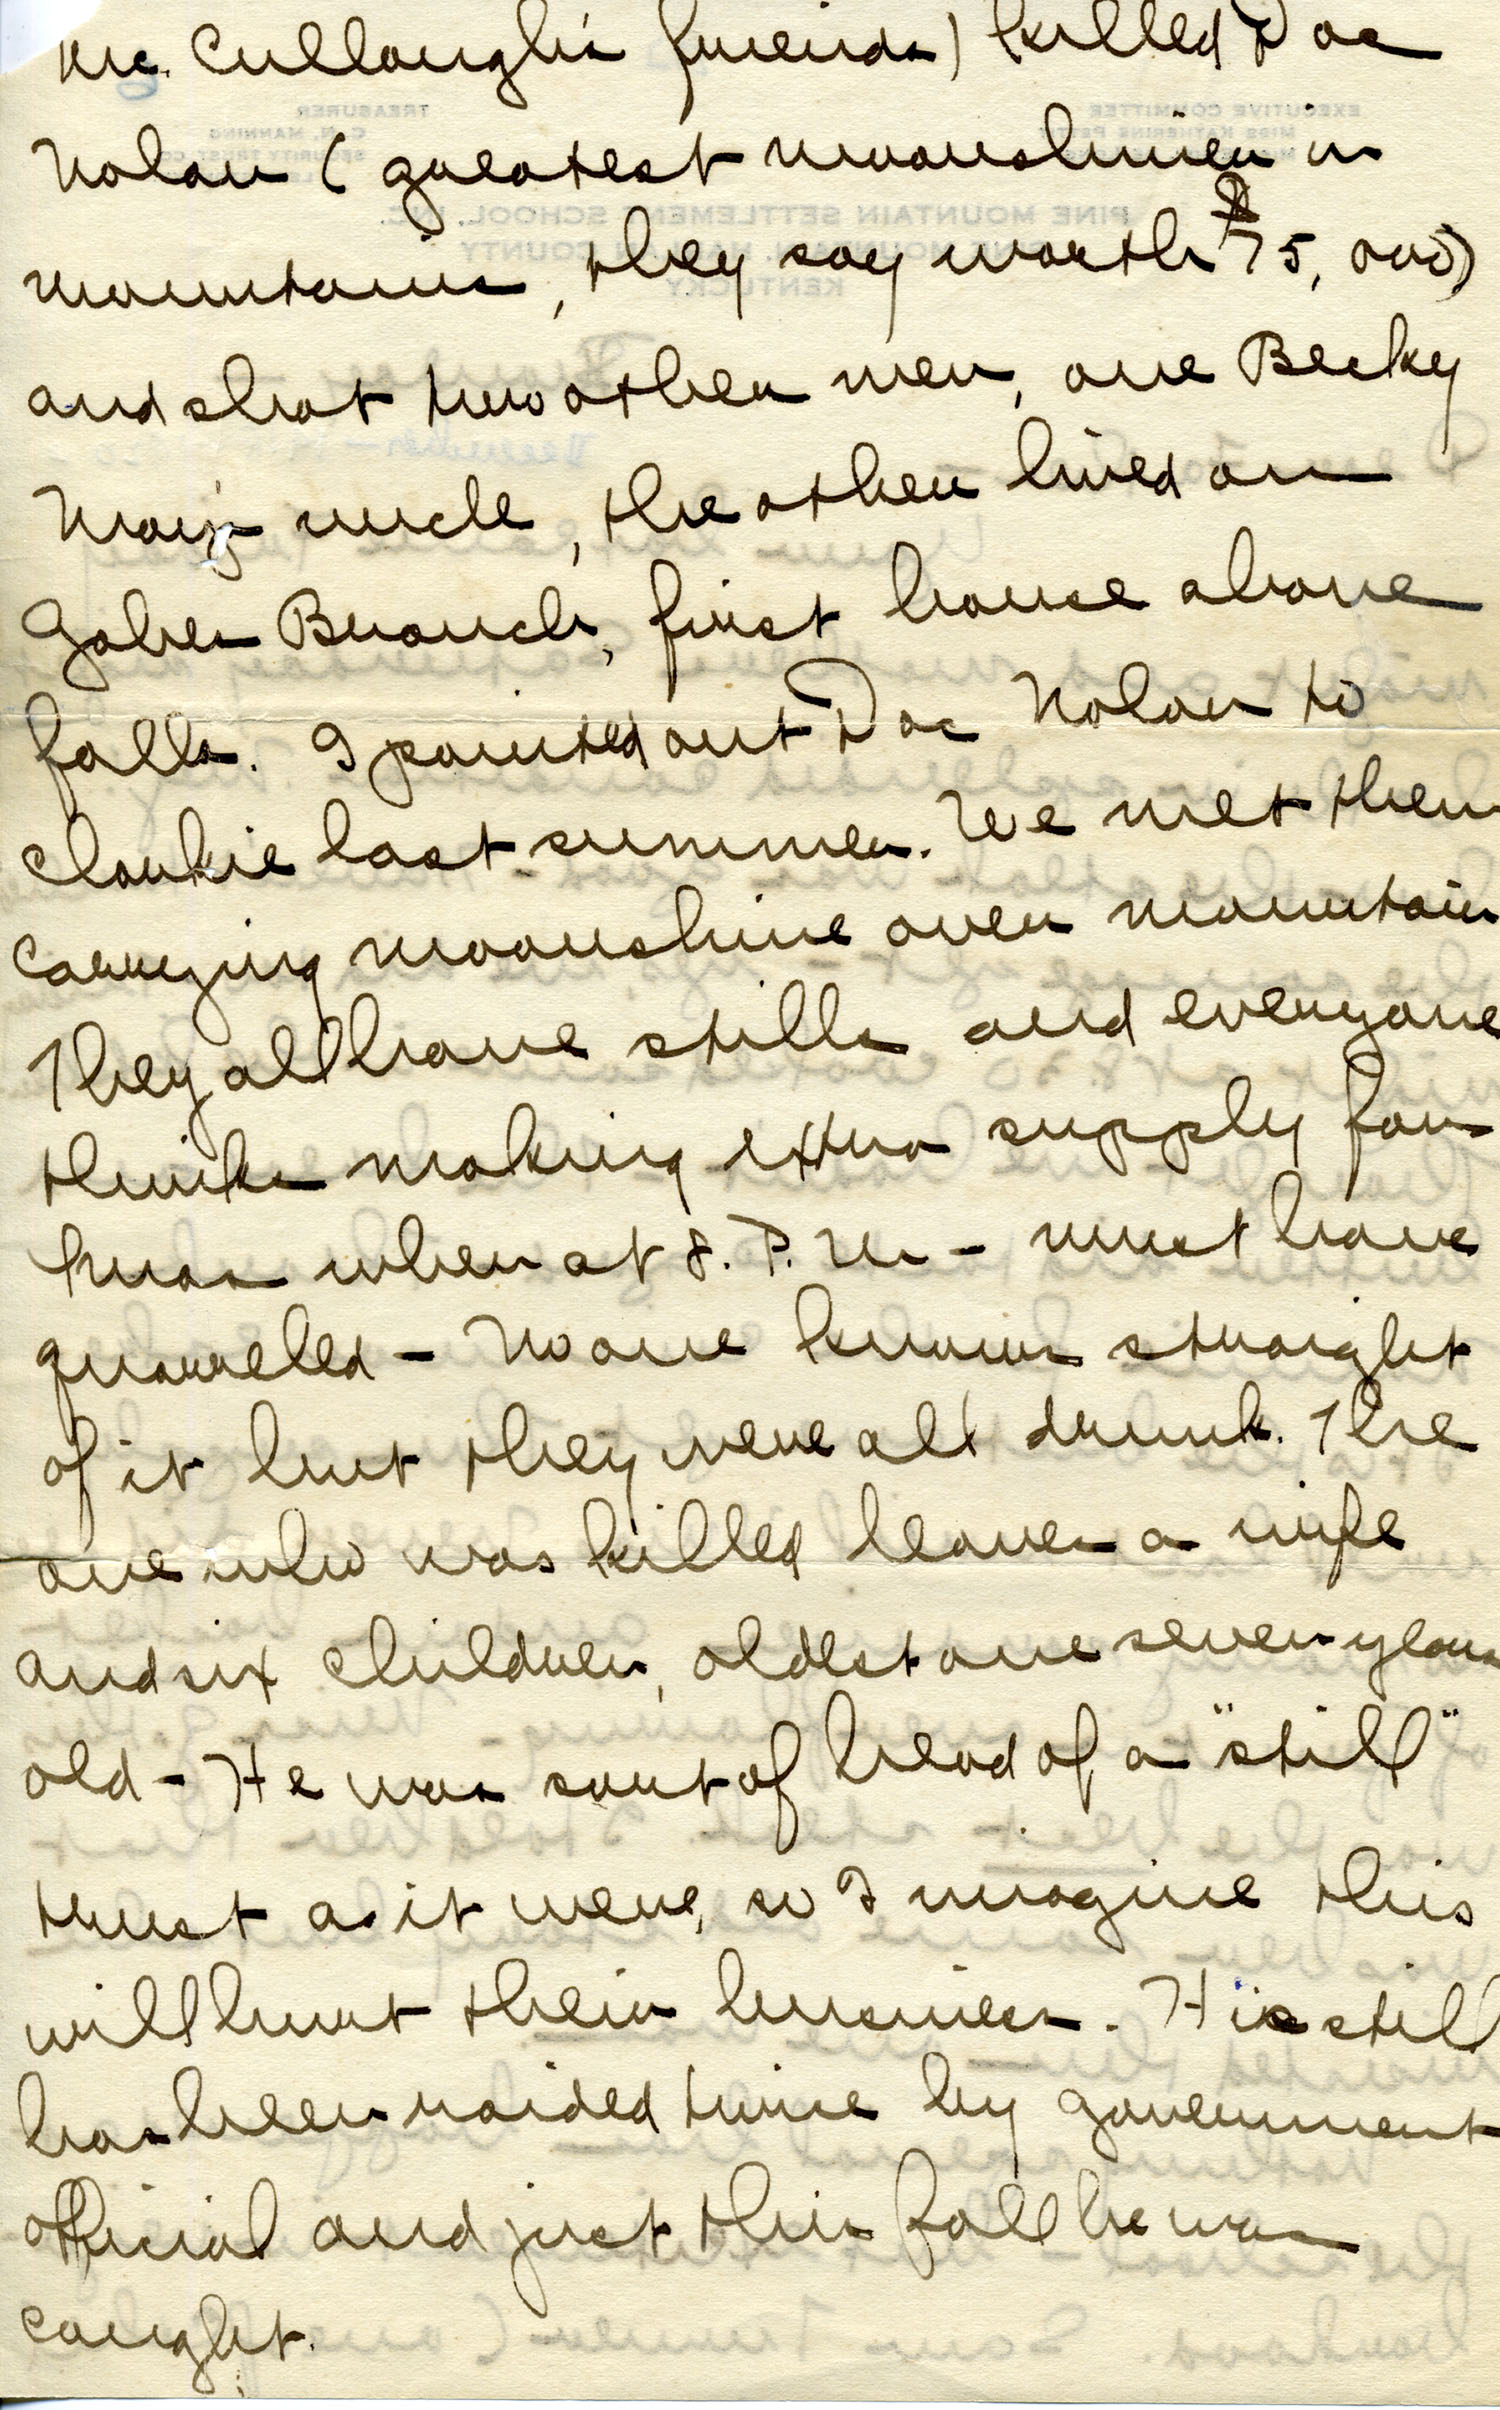 Mc. Cullough's friends) killed Doc
Nolan (greatest moonshiner in
mountains, they say worth $75,000)
and shot two other men, one Becky
May's uncle, the other lived on
Gaber Branch, first house above
falls. I pointed out Doc Nolan to
Cloukie last summer. We met them
carrying moonshine over mountain
They all have stills and everyone
thinks making extra supply for
Xmas when at 8. P. M - must have
quarreled - No one knows straight
of it but they were all drunk. The
one who was killed leaves a wife
and six children, oldest one seven years
old - He was sort of head of a "still"
trust as it were, so I imagine this
will hurt their business. His still
has been raided twice by government
official and just this fall he was
caught.
EXECUTIVE COMMITTEE
MISS KATHERINE PETTIT
TREASURER
C.N. MANNING
SECURITY TRUST CO
PINE MOUNTAIN SETTLEMENT SCHOOL. INC.
PINE MOUNTAIN, HARLAN COUNTY
KENTUCKY